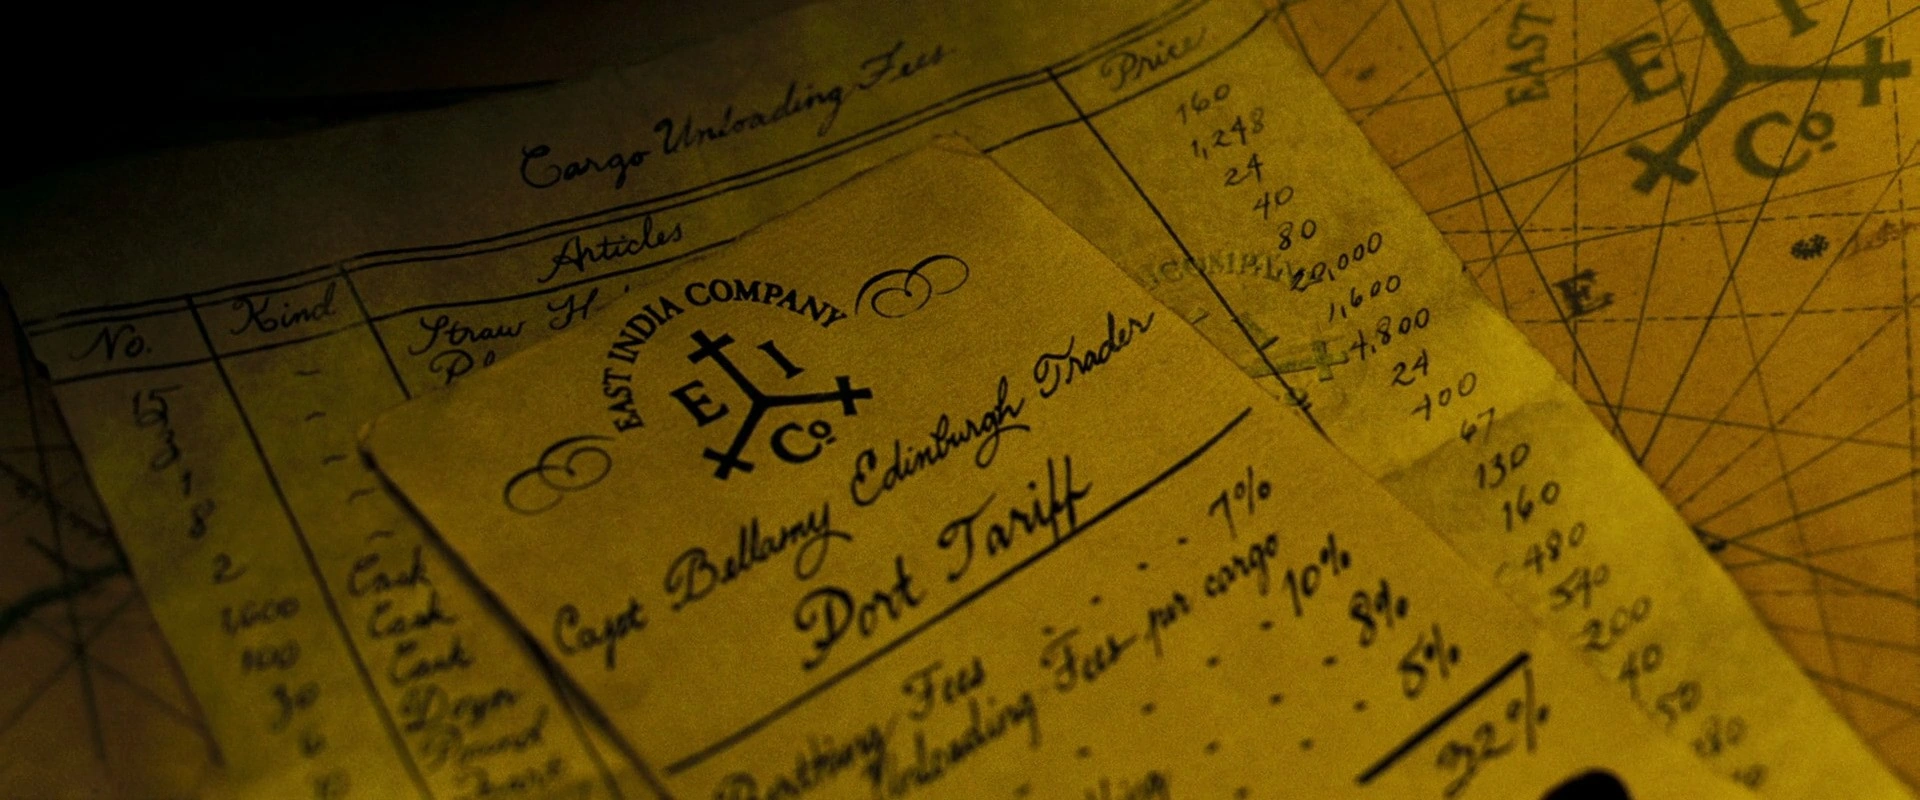 Cargo Unloading Fees
No.
Kind
Articles
Price
Straw
15
3
1
8
2
1,600
100
30
6
Cask
Cask
Cask
Dozen
Pound
160
1,248
24
40
80
20,000
1,600
4,800
24
400
67
130
160
480
540
200
40
50
80
EAST INDIA COMPANY
E I Co
Capt Bellamy Edinburgh Trader
Port Tariff
Berthing Fees - - 7%
Unloading Fees per cargo
- - 10%
- - 8%
- - 5%
32%
EAST
E I Co
E